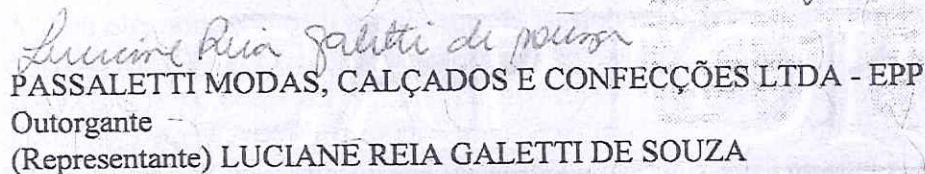 Luciane Reia Galetti de Souza
PASSALETTI MODAS, CALÇADOS E CONFECÇÕES LTDA - EPP
Outorgante
(Representante) LUCIANE REIA GALETTI DE SOUZA